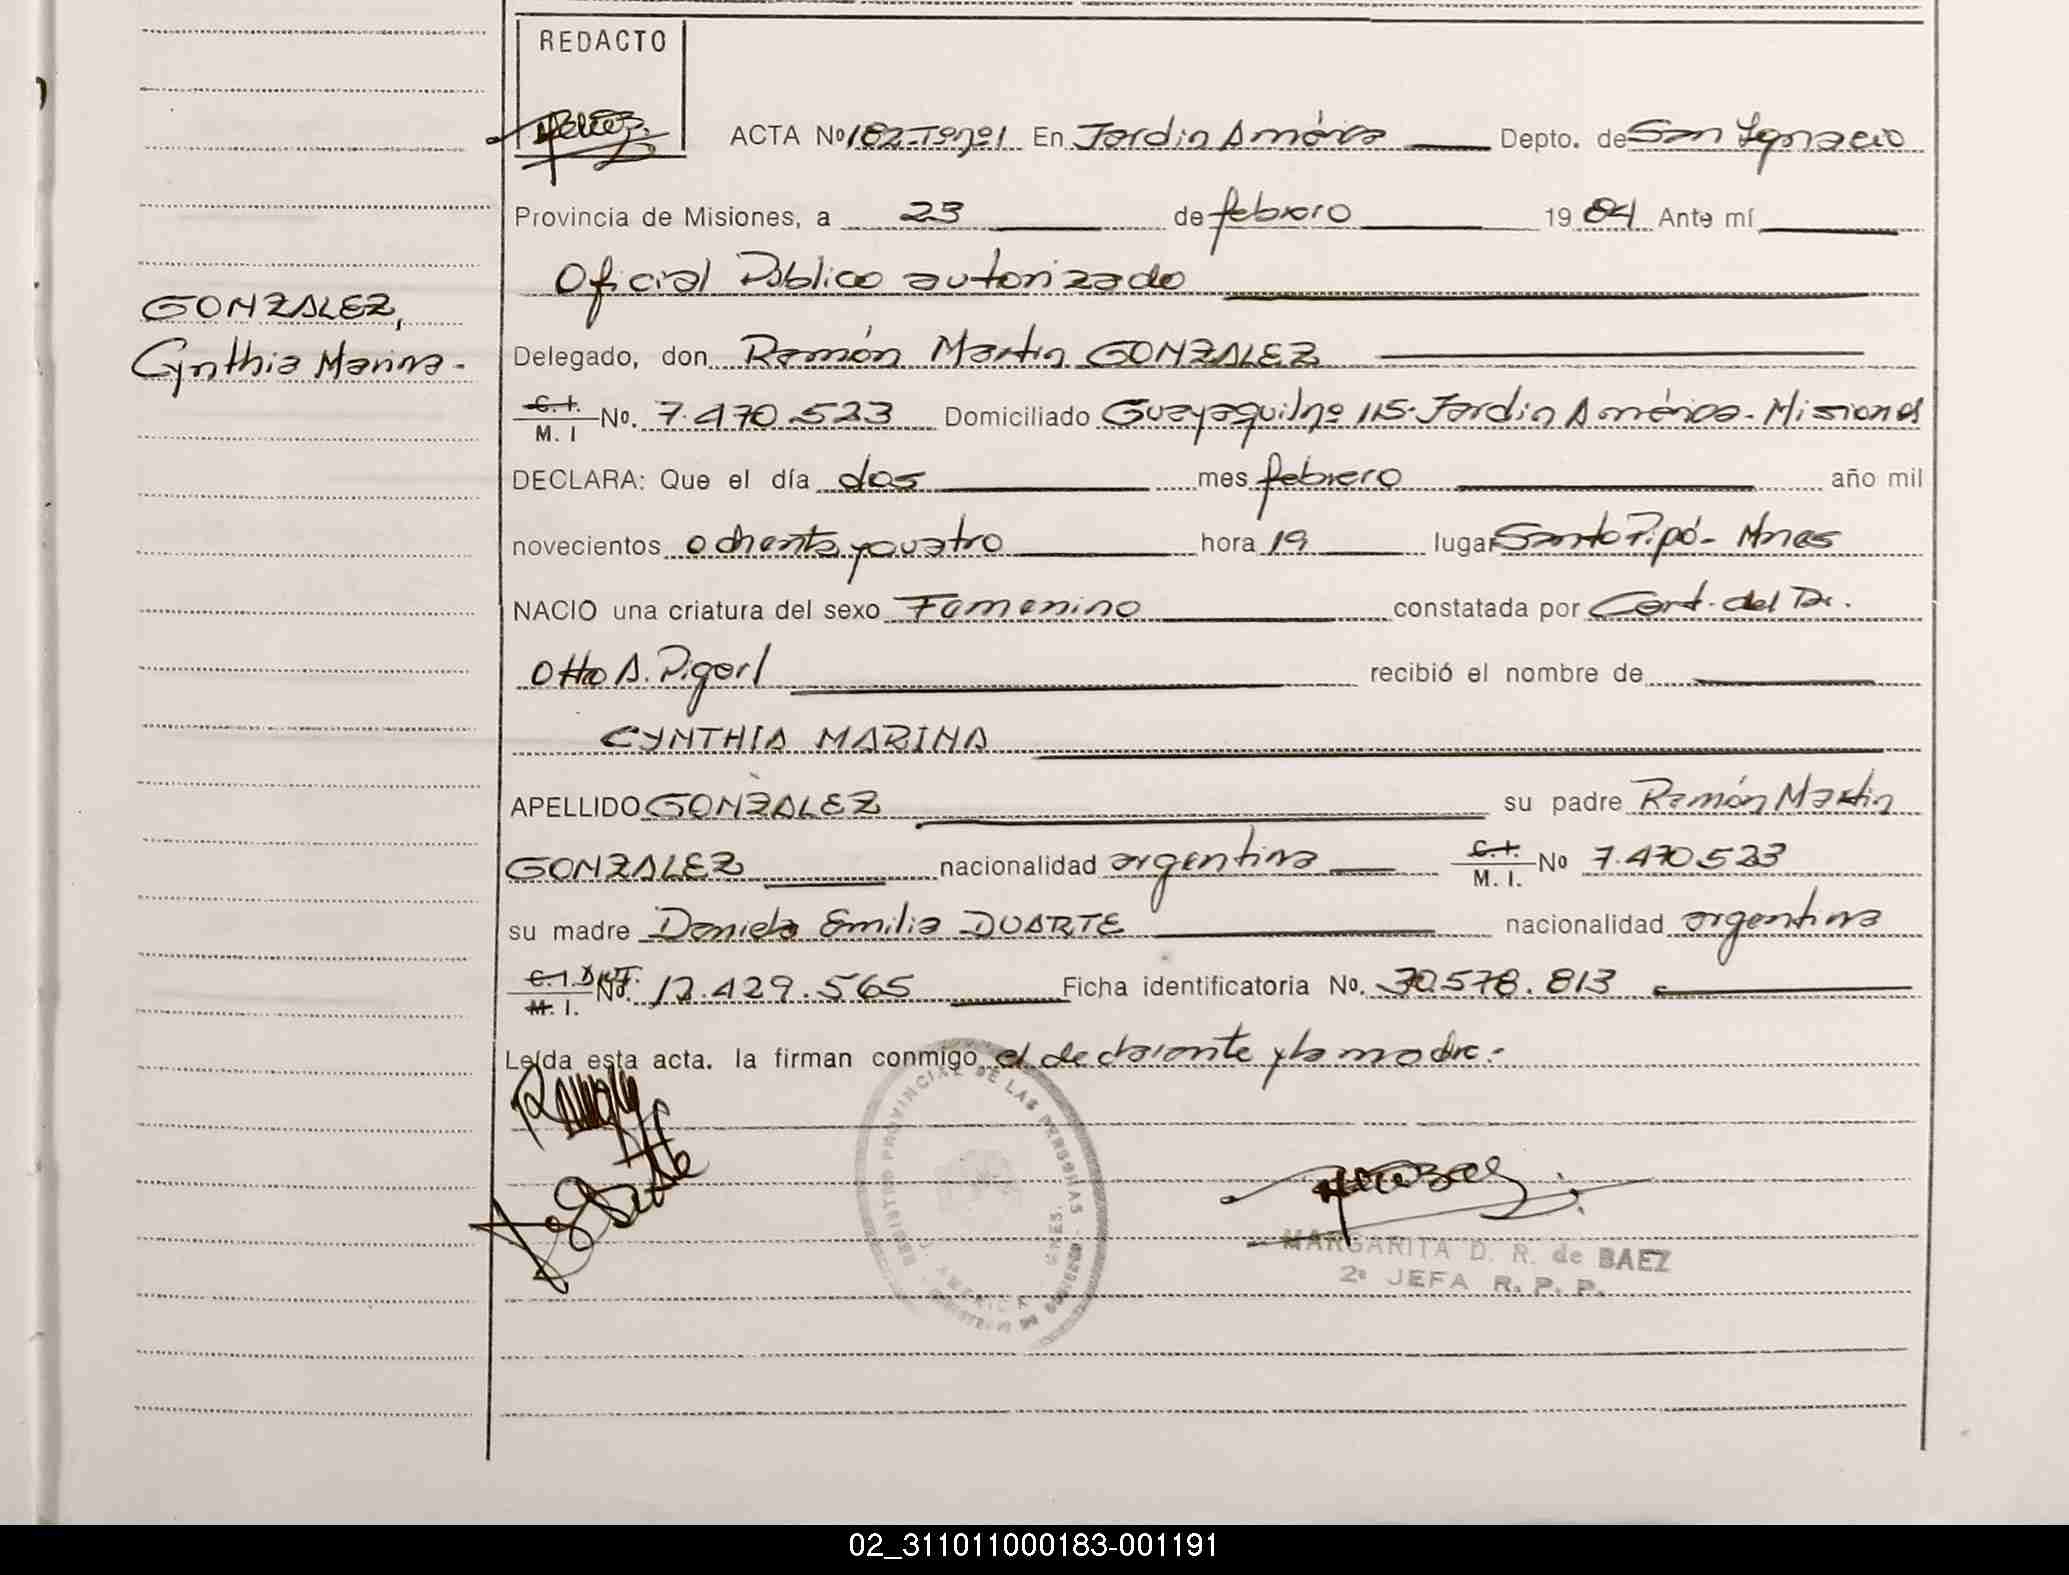 REDACTO
ACTA Nº 182-Tº nº 1 En Jardin América Depto. de San Ignacio
Provincia de Misiones, a 23 de febrero 1984 Ante mí
Oficial Público autorizado
GONZALEZ,
Cynthia Marina-
Delegado, don Ramón Martin GONZALEZ
C. I. M. I No. 7.470.523 Domiciliado Guayaquil nº 115-Jardin América- Misiones
DECLARA: Que el día dos mes febrero año mil
novecientos ochenta y cuatro hora 19 lugar Santo Pipó- Mnes
NACIO una criatura del sexo Femenino constatada por Cert. del Dr.
Otto A. Pigerl recibió el nombre de
CYNTHIA MARINA
APELLIDO GONZALEZ su padre Ramón Martin
GONZALEZ nacionalidad argentina C. I. M. I. No 7.470.523
su madre Daniela Emilia DUARTE nacionalidad argentina
C. I. M. I. No. 12.429.565 Ficha identificatoria No. 30.578.813
Leída esta acta. la firman conmigo el declarante y la madre.-
REGISTRO PROVINCIAL DE LAS PERSONAS
J. AMERICA MNES.
MARGARITA D. R. de BAEZ
2º JEFA R. P. P.
02_311011000183-001191